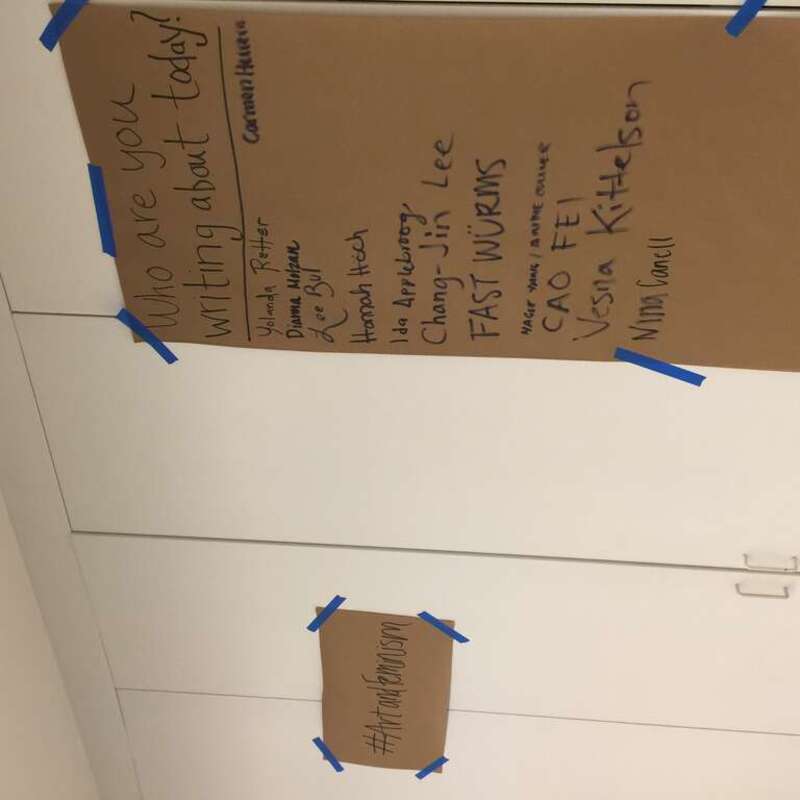 Who are you
writing about today?
Carmen Herrera
Yolanda Retter
Dianna Molzan
Lee Bul
Hannah Höch
Ida Applebroog
Chang-Jin Lee
FAST WÜRMS
CAO FEI
Vesna Kittelson
Nina Canell
#ArtandFeminism